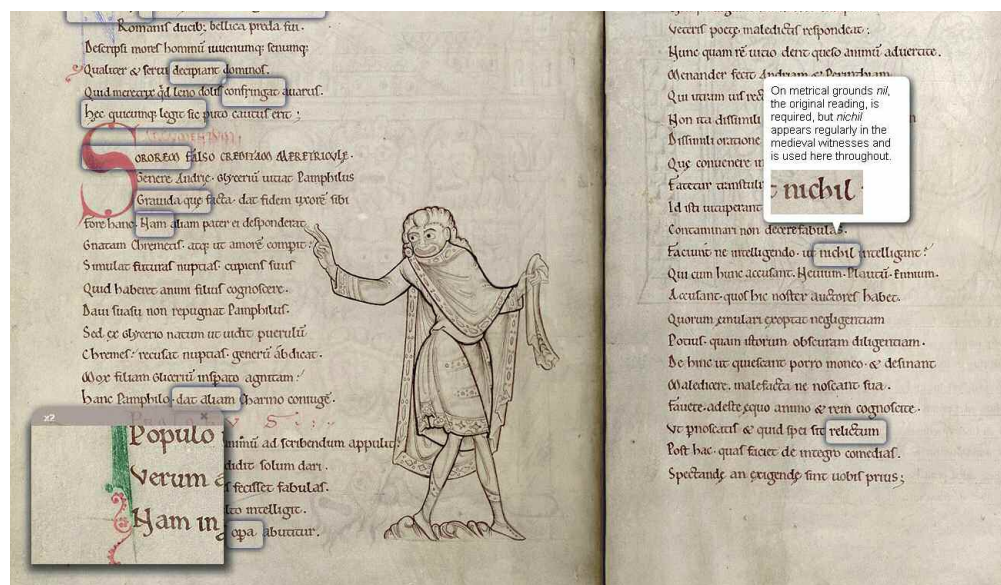 Romanis ducib; bellica preda fui.
Descripsi mores hominū iuuenumq; senumq;
Qualiter & serui decipiant dominos.
Quid meretrix qd leno dolis confringat auarus.
Hec quicumq; legit sic puto cautus erit;
SOROREM FALSO CREDITAM MERETRICULĘ.
Genere Andrię. Glyceriū uitiat Pamphilus
Grauida quę facta. dat fidem uxorē sibi
fore hanc. Nam aliam pater ei desponderat
Gnatam Chremetis. atq; ut amorē compit.
Simulat futuras nuptias. cupiens suus
Quid haberet animi filius cognoscere.
Daui suasu non repugnat Pamphilus.
Sed ex Glycerio natum ut uidit puerulū
Chremes. recusat nuptias. generū abdicat.
Mox filiam Gliceriū insperato agnitam.
hanc Pamphilo. dat aliam Charino coniugē.
x2
Populo
Verum
Nam in
animū ad scribendum appulit.
didit solum dari.
fecisset fabulas.
intelligit.
opa abutitur.
Veteris poetę maledictis respondeat;
Nunc quam rē uitio dent queso animū aduertite.
Menander fecit Andriam & Perinthiam
Qui utram
Non ita dissimili
Dissimili oratione
Quę conuenere
Id isti uituperant
Contaminari non decere fabulas.
Faciunt ne intelligendo. ut nichil intelligant?
Qui cum hunc accusant. Neuium. Plautū. Ennium.
Accusant. quos hic noster auctores habet.
Quorum ęmulari exoptat negligentiam
Potius. quam istorum obscuram diligentiam.
De hinc ut quiescant porro moneo. & desinant
Maledicere. malefacta ne noscant sua.
fauete. adeste ęquo animo & rem cognoscite.
Vt pnoscatis & quid spei sit relictum
Post hac. quas faciet de integro comedias.
Spectandę an exigendę sint uobis prius;
On metrical grounds nil,
the original reading, is
required, but nichil
appears regularly in the
medieval witnesses and
is used here throughout.
nichil